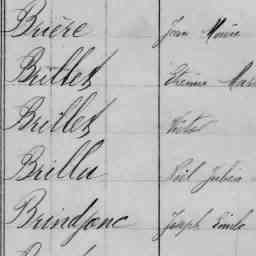 Brière Jean Marie
Brillet Etienne
Brillet Victor
Brilla Noël Julien
Brindjonc Joseph Emile